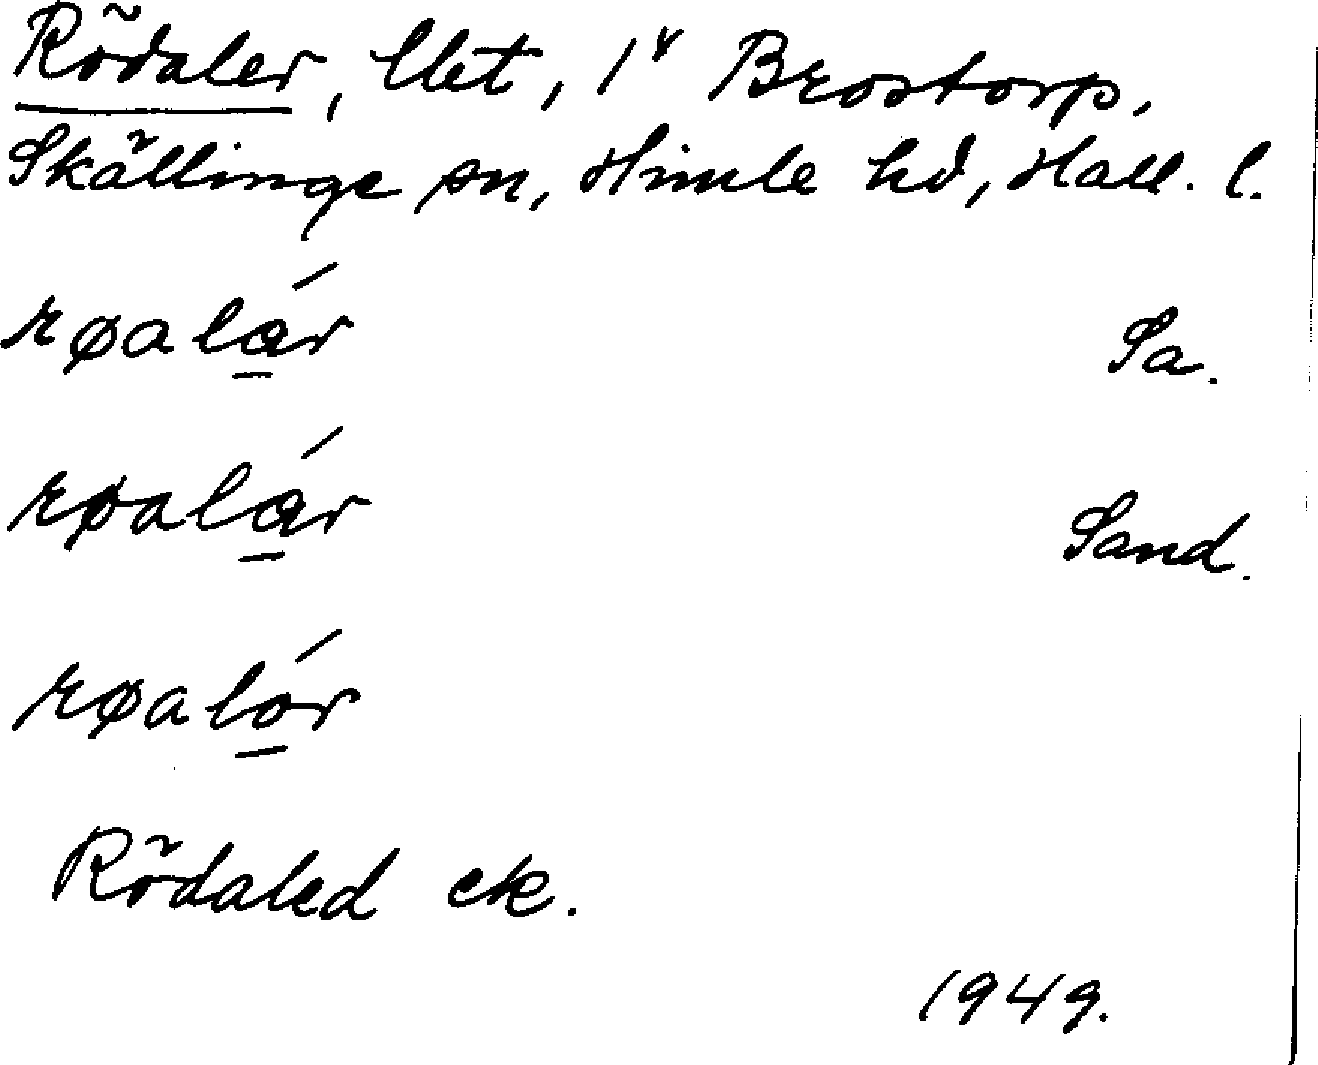 Rödaler, llet, 1⁸ Brostorp,
Skällinge sn, Himle hd, Hall. l.
røalár Sa.
røalár Sand.
røalór
Rödaled ek.
1949.